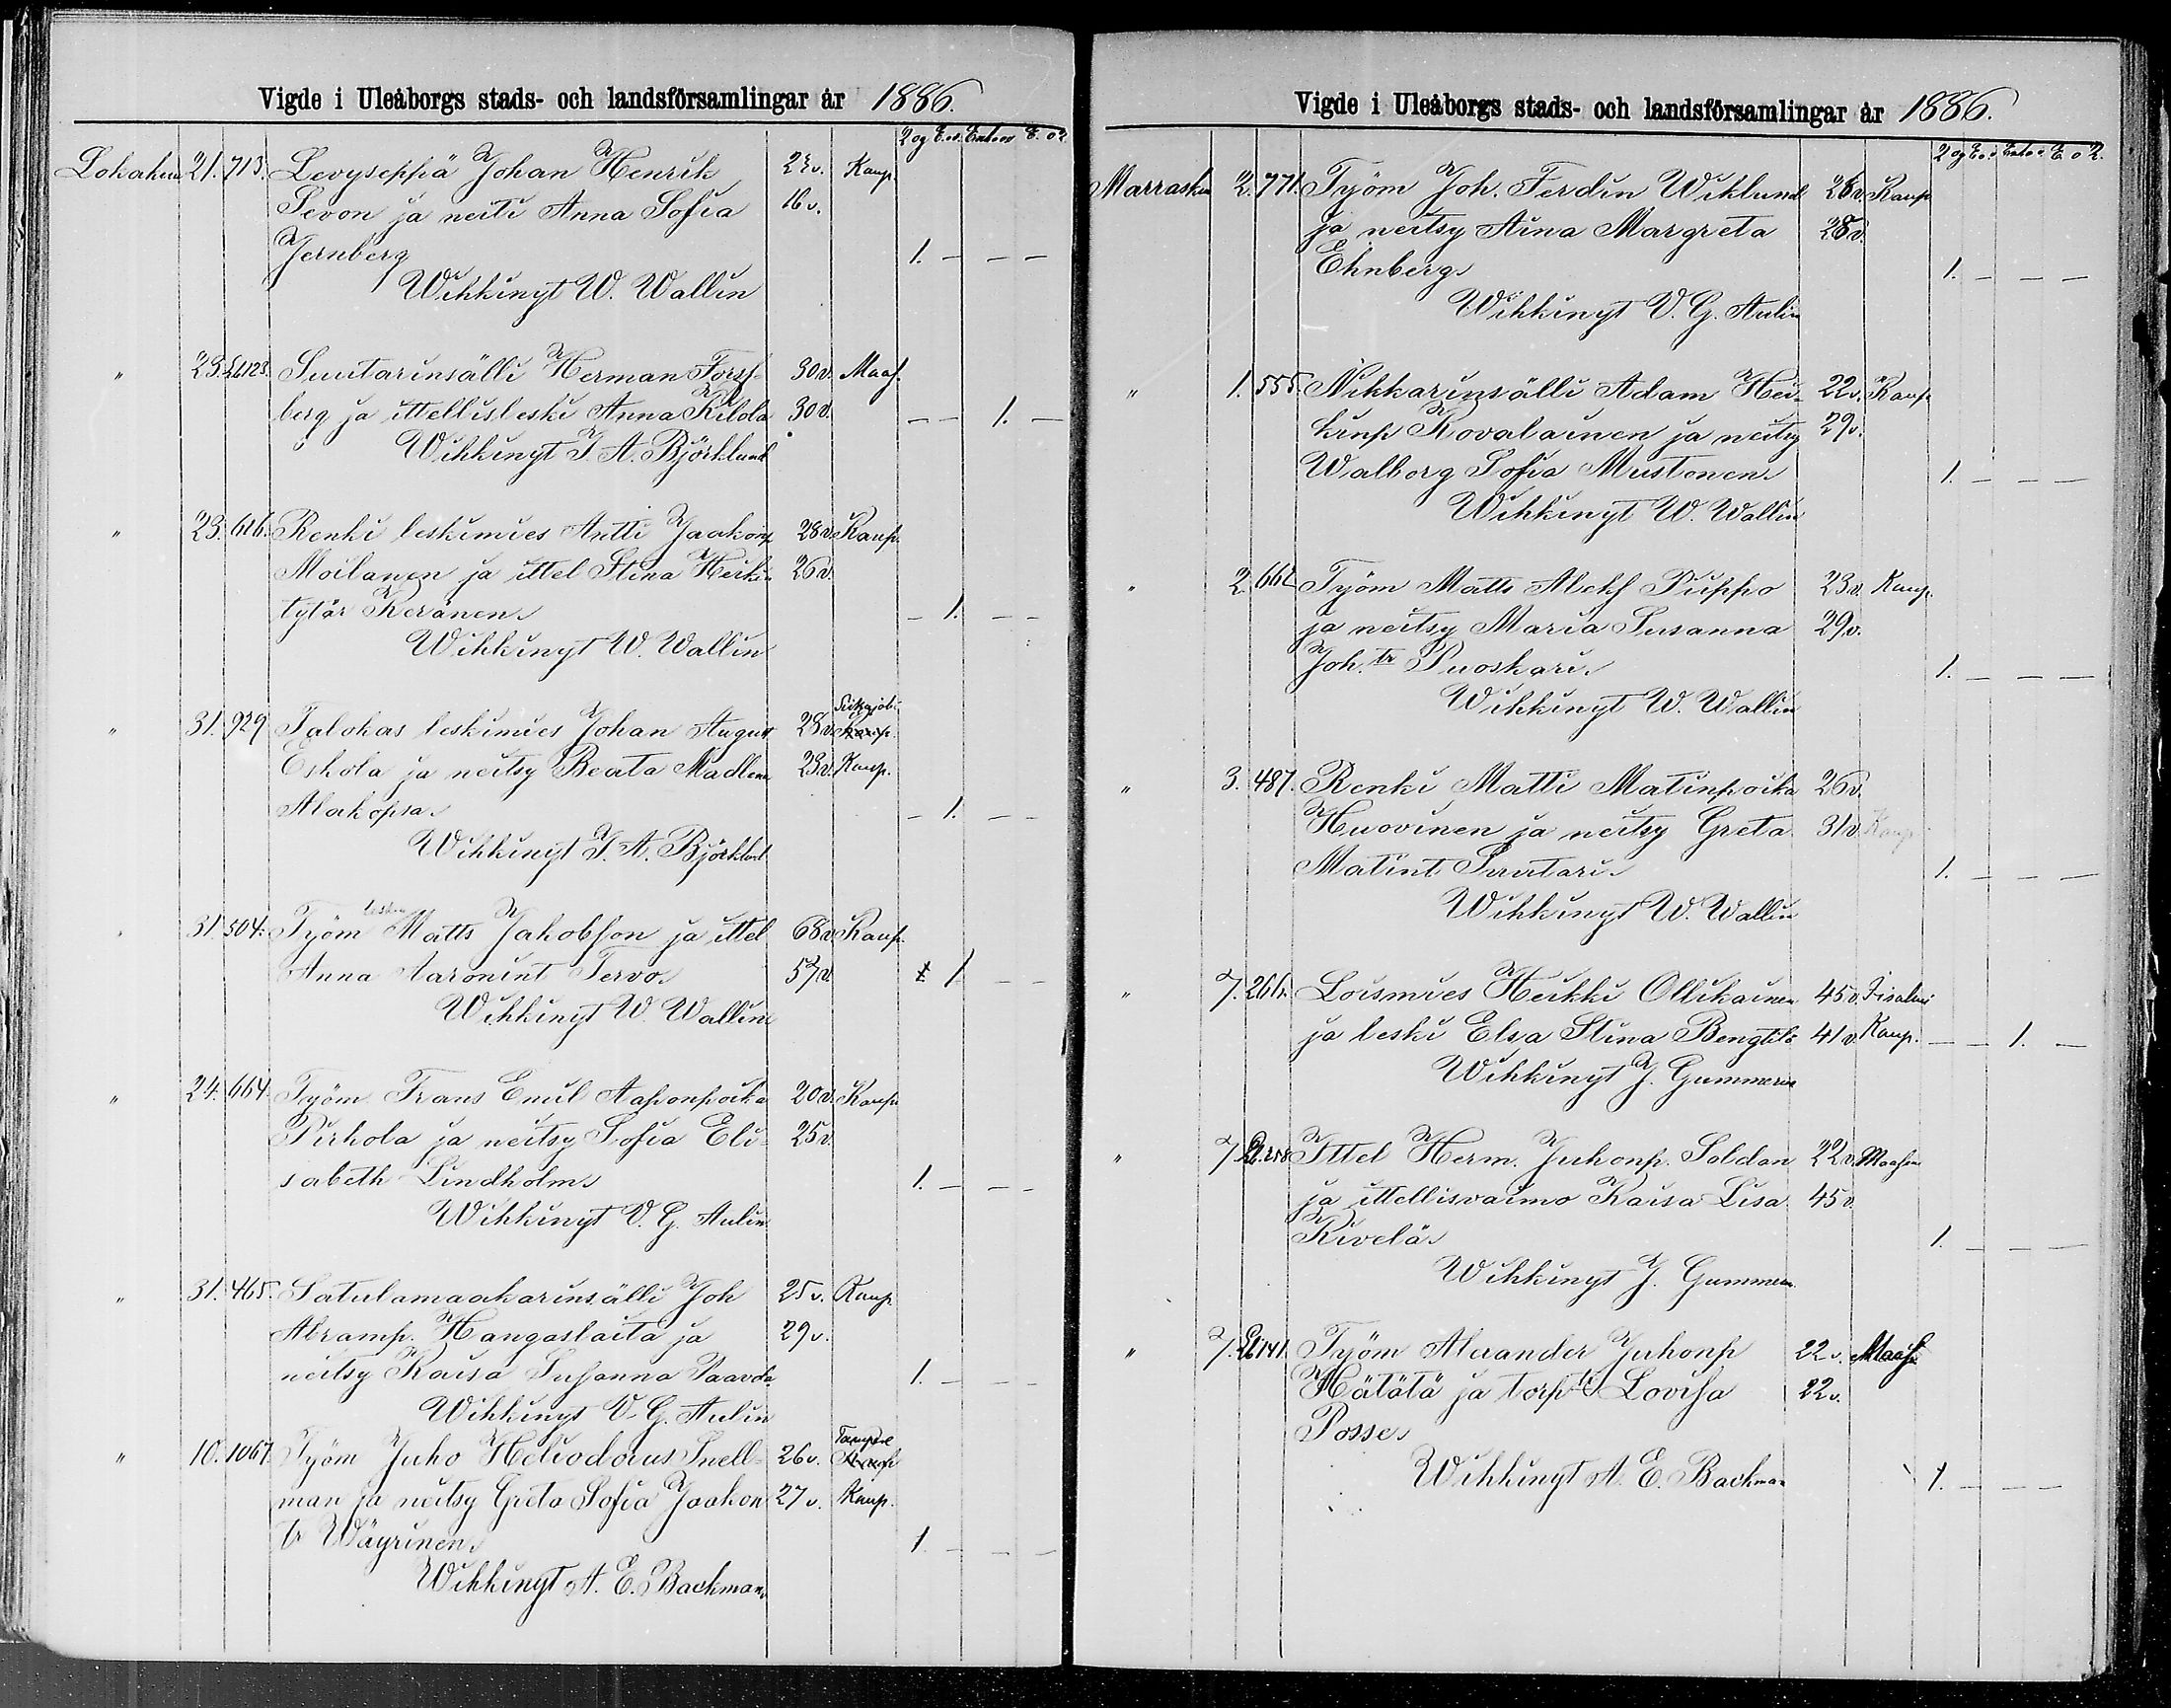 Vigde i Uleåborgs stads- och landsförsamlingar år 1886.
2 og E. o Enka o E. o 2.
Lokakuu 21. 713. Levyseppä Johan Henrik 24 v. Kaup.
Sevon ja neiti Anna Sofia 16 v.
Jernberg 1. — — —
Wihkinyt W. Wallin
" 23. L6123. Suutarinsälli Herman Forss- 30 v. Maas.
berg ja ittellisleski Anna Kilola 30 v. — — 1. —
Wihkinyt J. A. Björklund
" 23. 616. Renki leskimies Antti Jaakonp 28 v. Kaup.
Moilanen ja ittel Stina Heikin 26 v.
tytär Keränen — 1. — —
Wihkinyt W. Wallin
" 31. 929 Talokas leskimies Johan August 28 v. Siikajoki Kaup.
Eskola ja neitsy Beata Madlena 23 v. Kaup.
Alakopsa — 1. — —
Wihkinyt J. A. Björklund
" 31. 504. Työm leskim Matts Jakobsson ja ittel 68 v. Kaup.
Anna Aaronint Tervo 57 v. 1 1 — —
Wihkinyt W. Wallin
" 24. 664. Työm Frans Emil Aaponpoika 20 v. Kaup
Pirhola ja neitsy Sofia Eli- 25 v.
sabeth Lindholm 1. — — —
Wihkinyt V. G. Aulin
" 31. 465. Satulamaakarinsälli Joh 25 v. Kaup
Abramp. Hangaslaita ja 29 v.
neitsy Kaisa Susanna Paavola 1. — — —
Wihkinyt V. G. Aulin
" 10. 1067. Työm Juho Heliodorus Snell- 26 v. Tampere Kaup
man ja neitsy Greta Sofia Jaakon 27 v. Kaup.
tr Wäyrinen 1. — — —
Wihkinyt A. E. Backman
Vigde i Uleåborgs stads- och landsförsamlingar år 1886.
2 og E. o Enka o E. o 2.
Marraskuu 2. 771. Työm Joh. Ferdin Wiklund 28 v. Kaup
ja neitsy Aina Margreta 28 v.
Ehnberg 1. — — —
Wihkinyt V. G. Aulin
" 1. 555. Nikkarinsälli Adam Hei- 22 v. Kaup
kinp Kovalainen ja neitsy 29 v.
Walborg Sofia Mustonen 1. — — —
Wihkinyt W. Wallin
" 2. 662 Työm Matts Aleks Puppo 23 v. Kaup.
ja neitsy Maria Susanna 29 v.
Joh. tr Puoskari 1. — — —
Wihkinyt W. Wallin
" 3. 487. Renki Matti Matinpoika 26 v.
Huovinen ja neitsy Greta 31 v. Kaup
Matint Suutari 1. — — —
Wihkinyt W. Wallin
" 7. 266. Loismies Heikki Ollikainen 45 v. Iisalmi
ja leski Elsa Stina Bengtils 41 v. Kaup. — — 1. —
Wihkinyt J. Gummerus
" 7. L6. 258 Ittel Herm. Juhonp. Soldan 22 v. Maaseu
ja ittellisvaimo Kaisa Lisa 45 v.
Kivelä 1. — — —
Wihkinyt J. Gummerus
" 7. L6 141. Työm Alexander Juhonp 22 v. Maas
Hätätä ja torp tr Lovisa 22 v.
Posse
Wihkinyt A. E. Backman 1. — — —